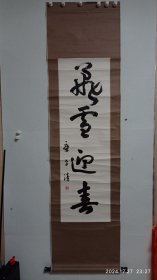 飛雪迎春
2024.12.27 23:27